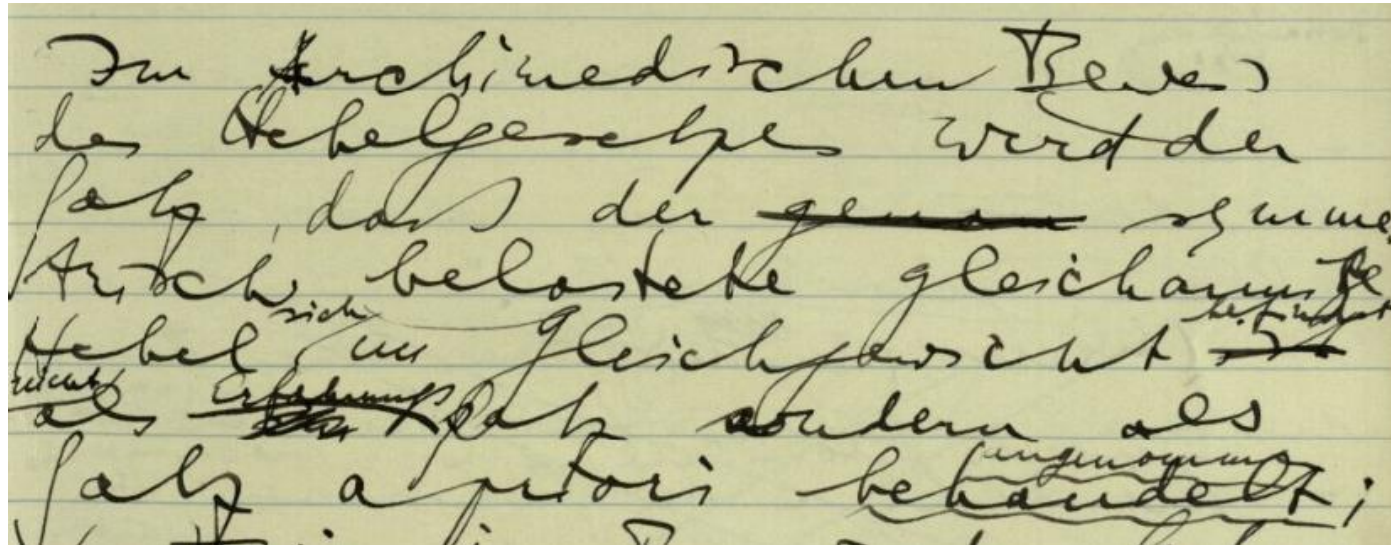 Im Archimedischen Beweis
des Hebelgesetzes wird der
Satz, dass der genau symme-
trisch belastete gleicharmige
Hebel sich im Gleichgewicht befindet
nicht als Erfahrungssatz sondern als
Satz a priori angenommen behandelt;